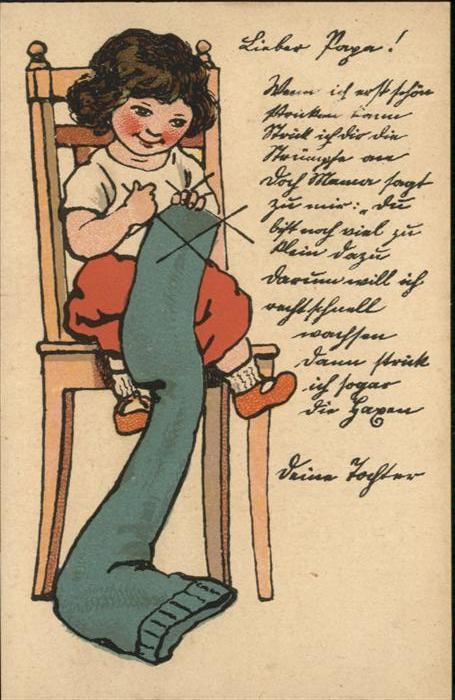 Lieber Papa!
Wenn ich erst schön
stricken kann
Strick ich dir die
Strümpfe an
Doch Mama sagt
zu mir: „Du
bist noch viel zu
klein dazu
darum will ich
recht schnell
wachsen
dann strick
ich sogar
die Haxen
deine Tochter